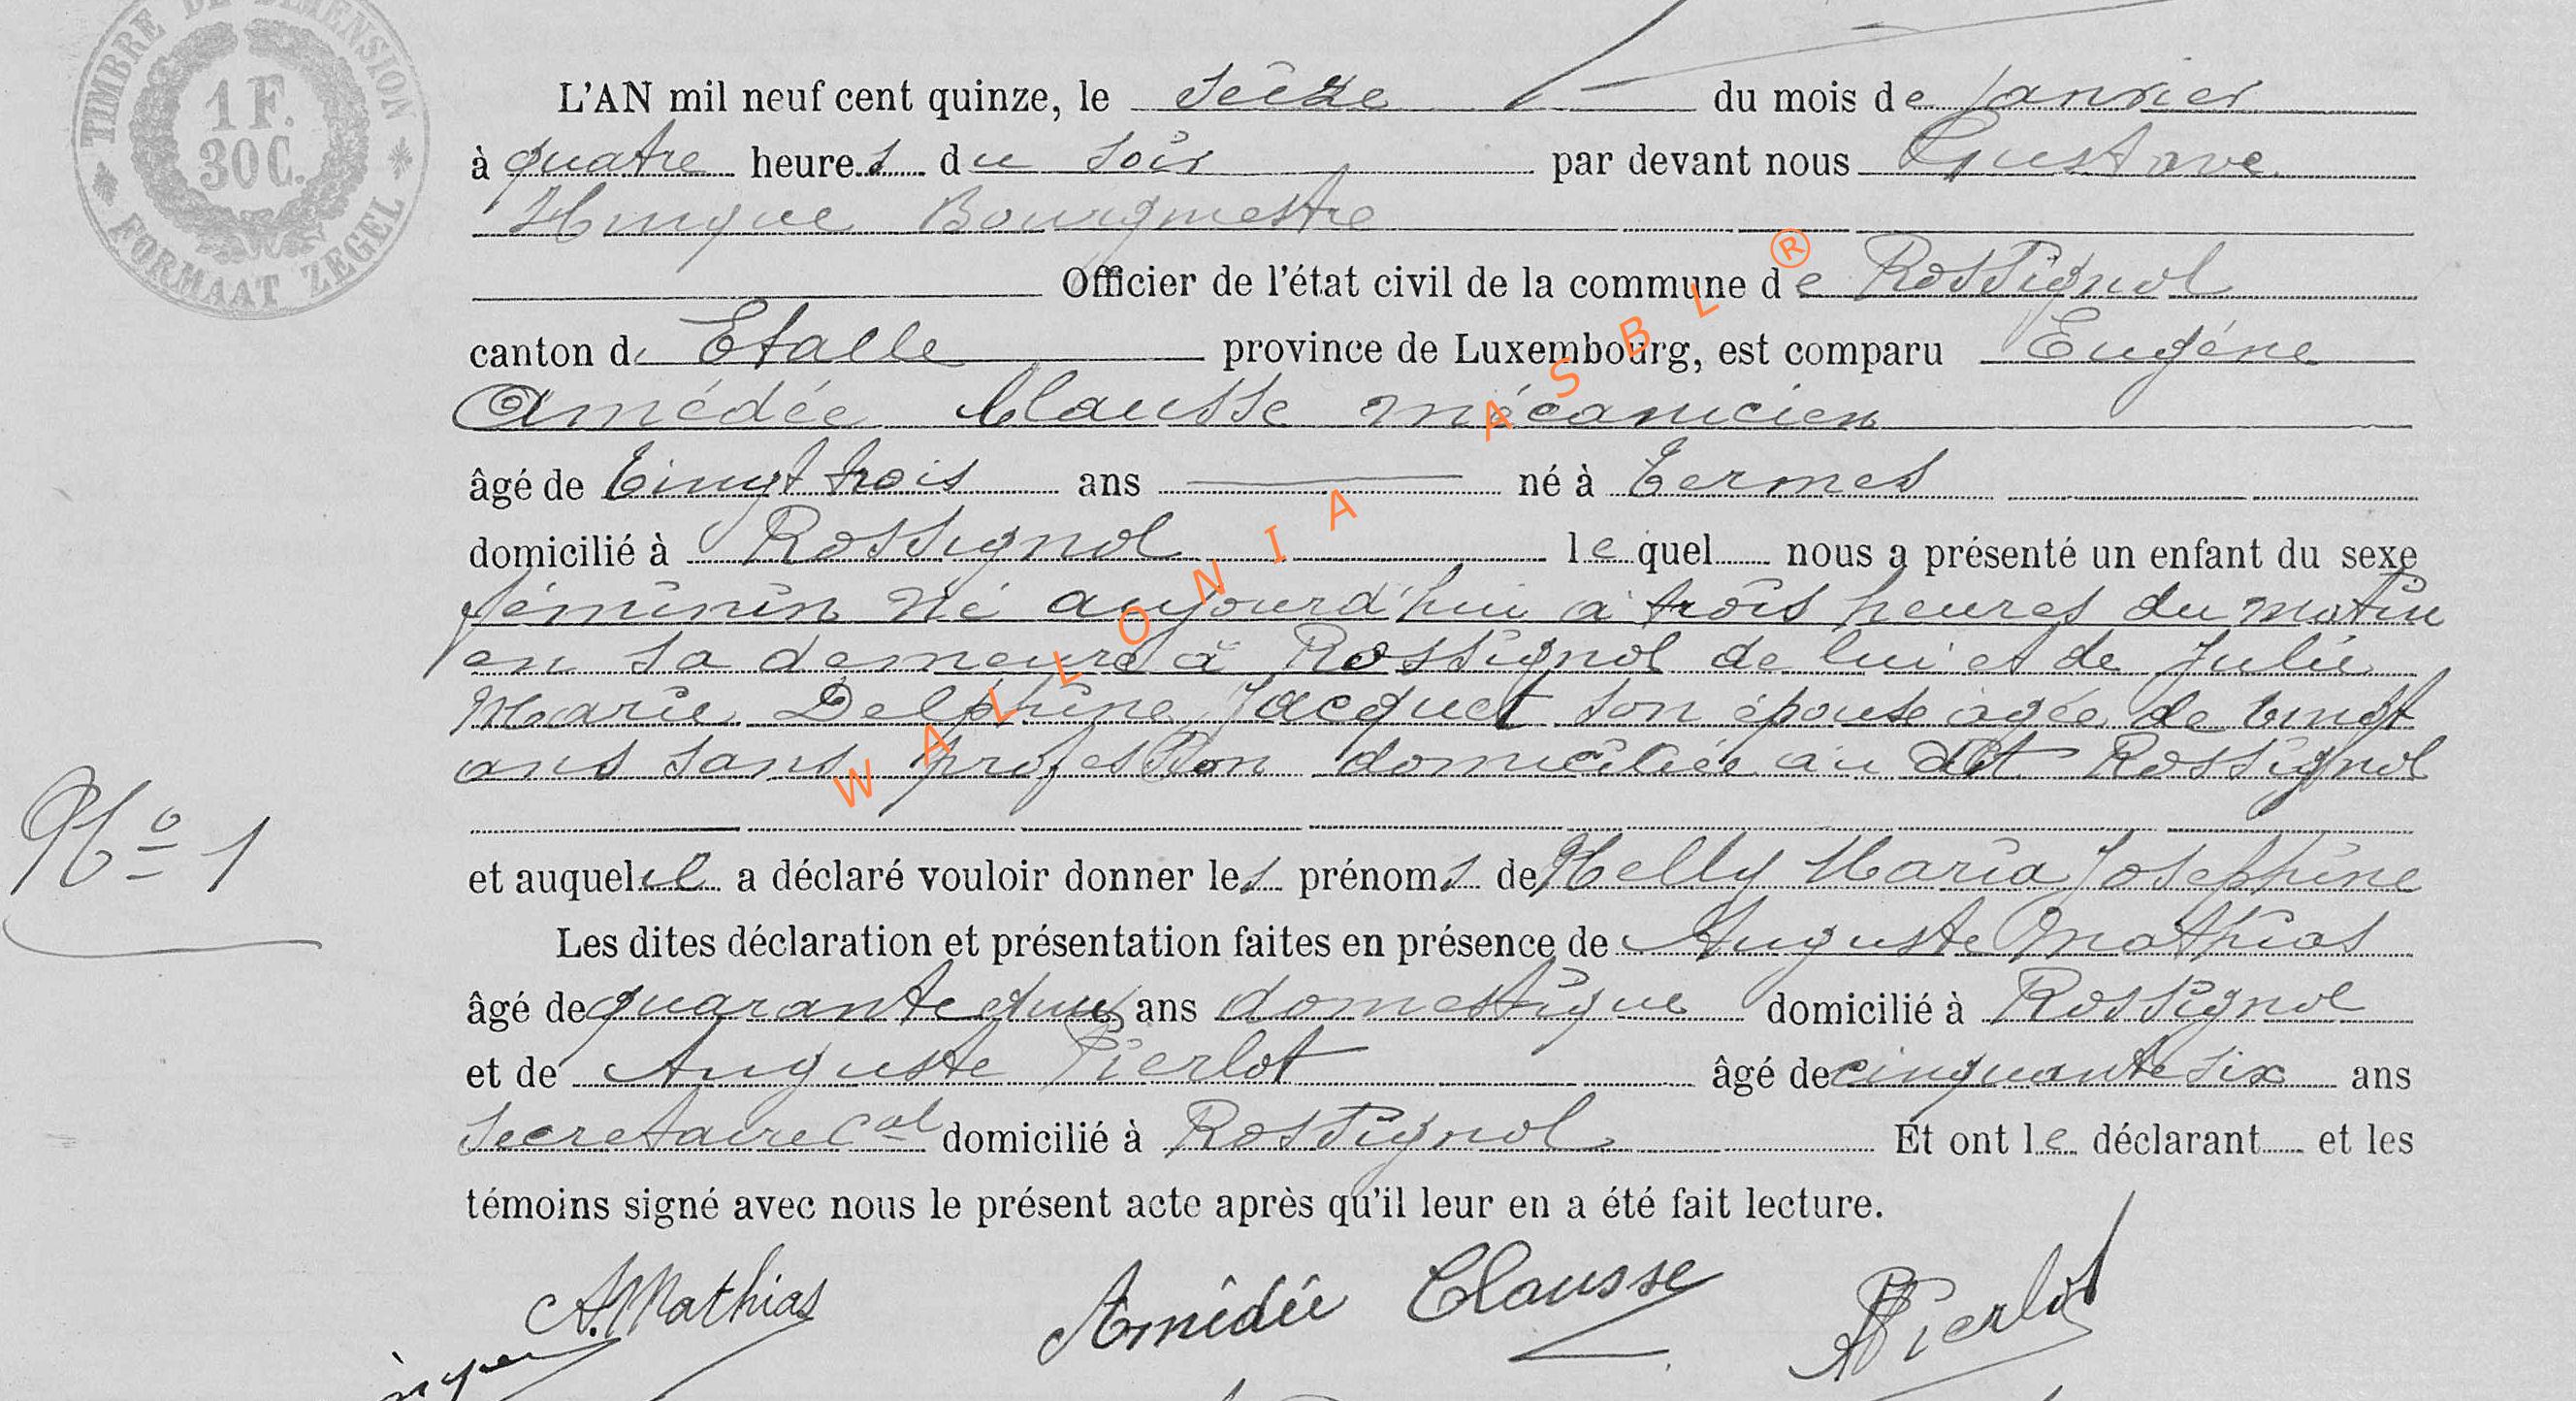 TIMBRE DE DIMENSION
1 F.
30 C.
FORMAAT ZEGEL
L'AN mil neuf cent quinze, le seize du mois de janvier
à quatre heures du soir par devant nous Gustave
Hinque Bourgmestre
Officier de l'état civil de la commune de Rossignol
canton d Etalle province de Luxembourg, est comparu Eugène
Amédée Clausse mécanicien
âgé de vingt trois ans né à Termes
domicilié à Rossignol lequel nous a présenté un enfant du sexe
féminin né aujourd'hui à trois heures du matin
en sa demeure à Rossignol de lui et de Julie
Marie Delphine Jacquet son épouse âgée de vingt
ans sans profession domiciliée au dit Rossignol
N° 1
et auquel il a déclaré vouloir donner les prénoms de Nelly Maria Joséphine
Les dites déclaration et présentation faites en présence de Auguste Mathias
âgé de quarante ans domestique domicilié à Rossignol
et de Auguste Pierlot âgé de cinquante six ans
secretaire cal domicilié à Rossignol Et ont le déclarant et les
témoins signé avec nous le présent acte après qu'il leur en a été fait lecture.
A. Mathias Amédée Clausse Pierlot
WALLONIA ASBL ®